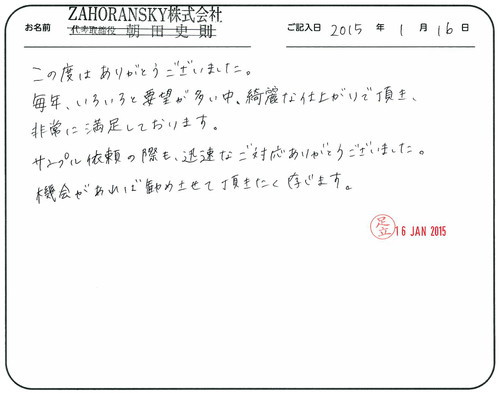 ZAHORANSKY株式会社
お名前 代表取締役 朝田史則 ご記入日 2015 年 1 月 16 日
この度はありがとうございました。
毎年、いろいろと要望が多い中、綺麗な仕上がりで頂き、
非常に満足しております。
サンプル依頼の際も、迅速なご対応ありがとうございました。
機会があれば勧めさせて頂きたく存じます。
足立 16 JAN 2015